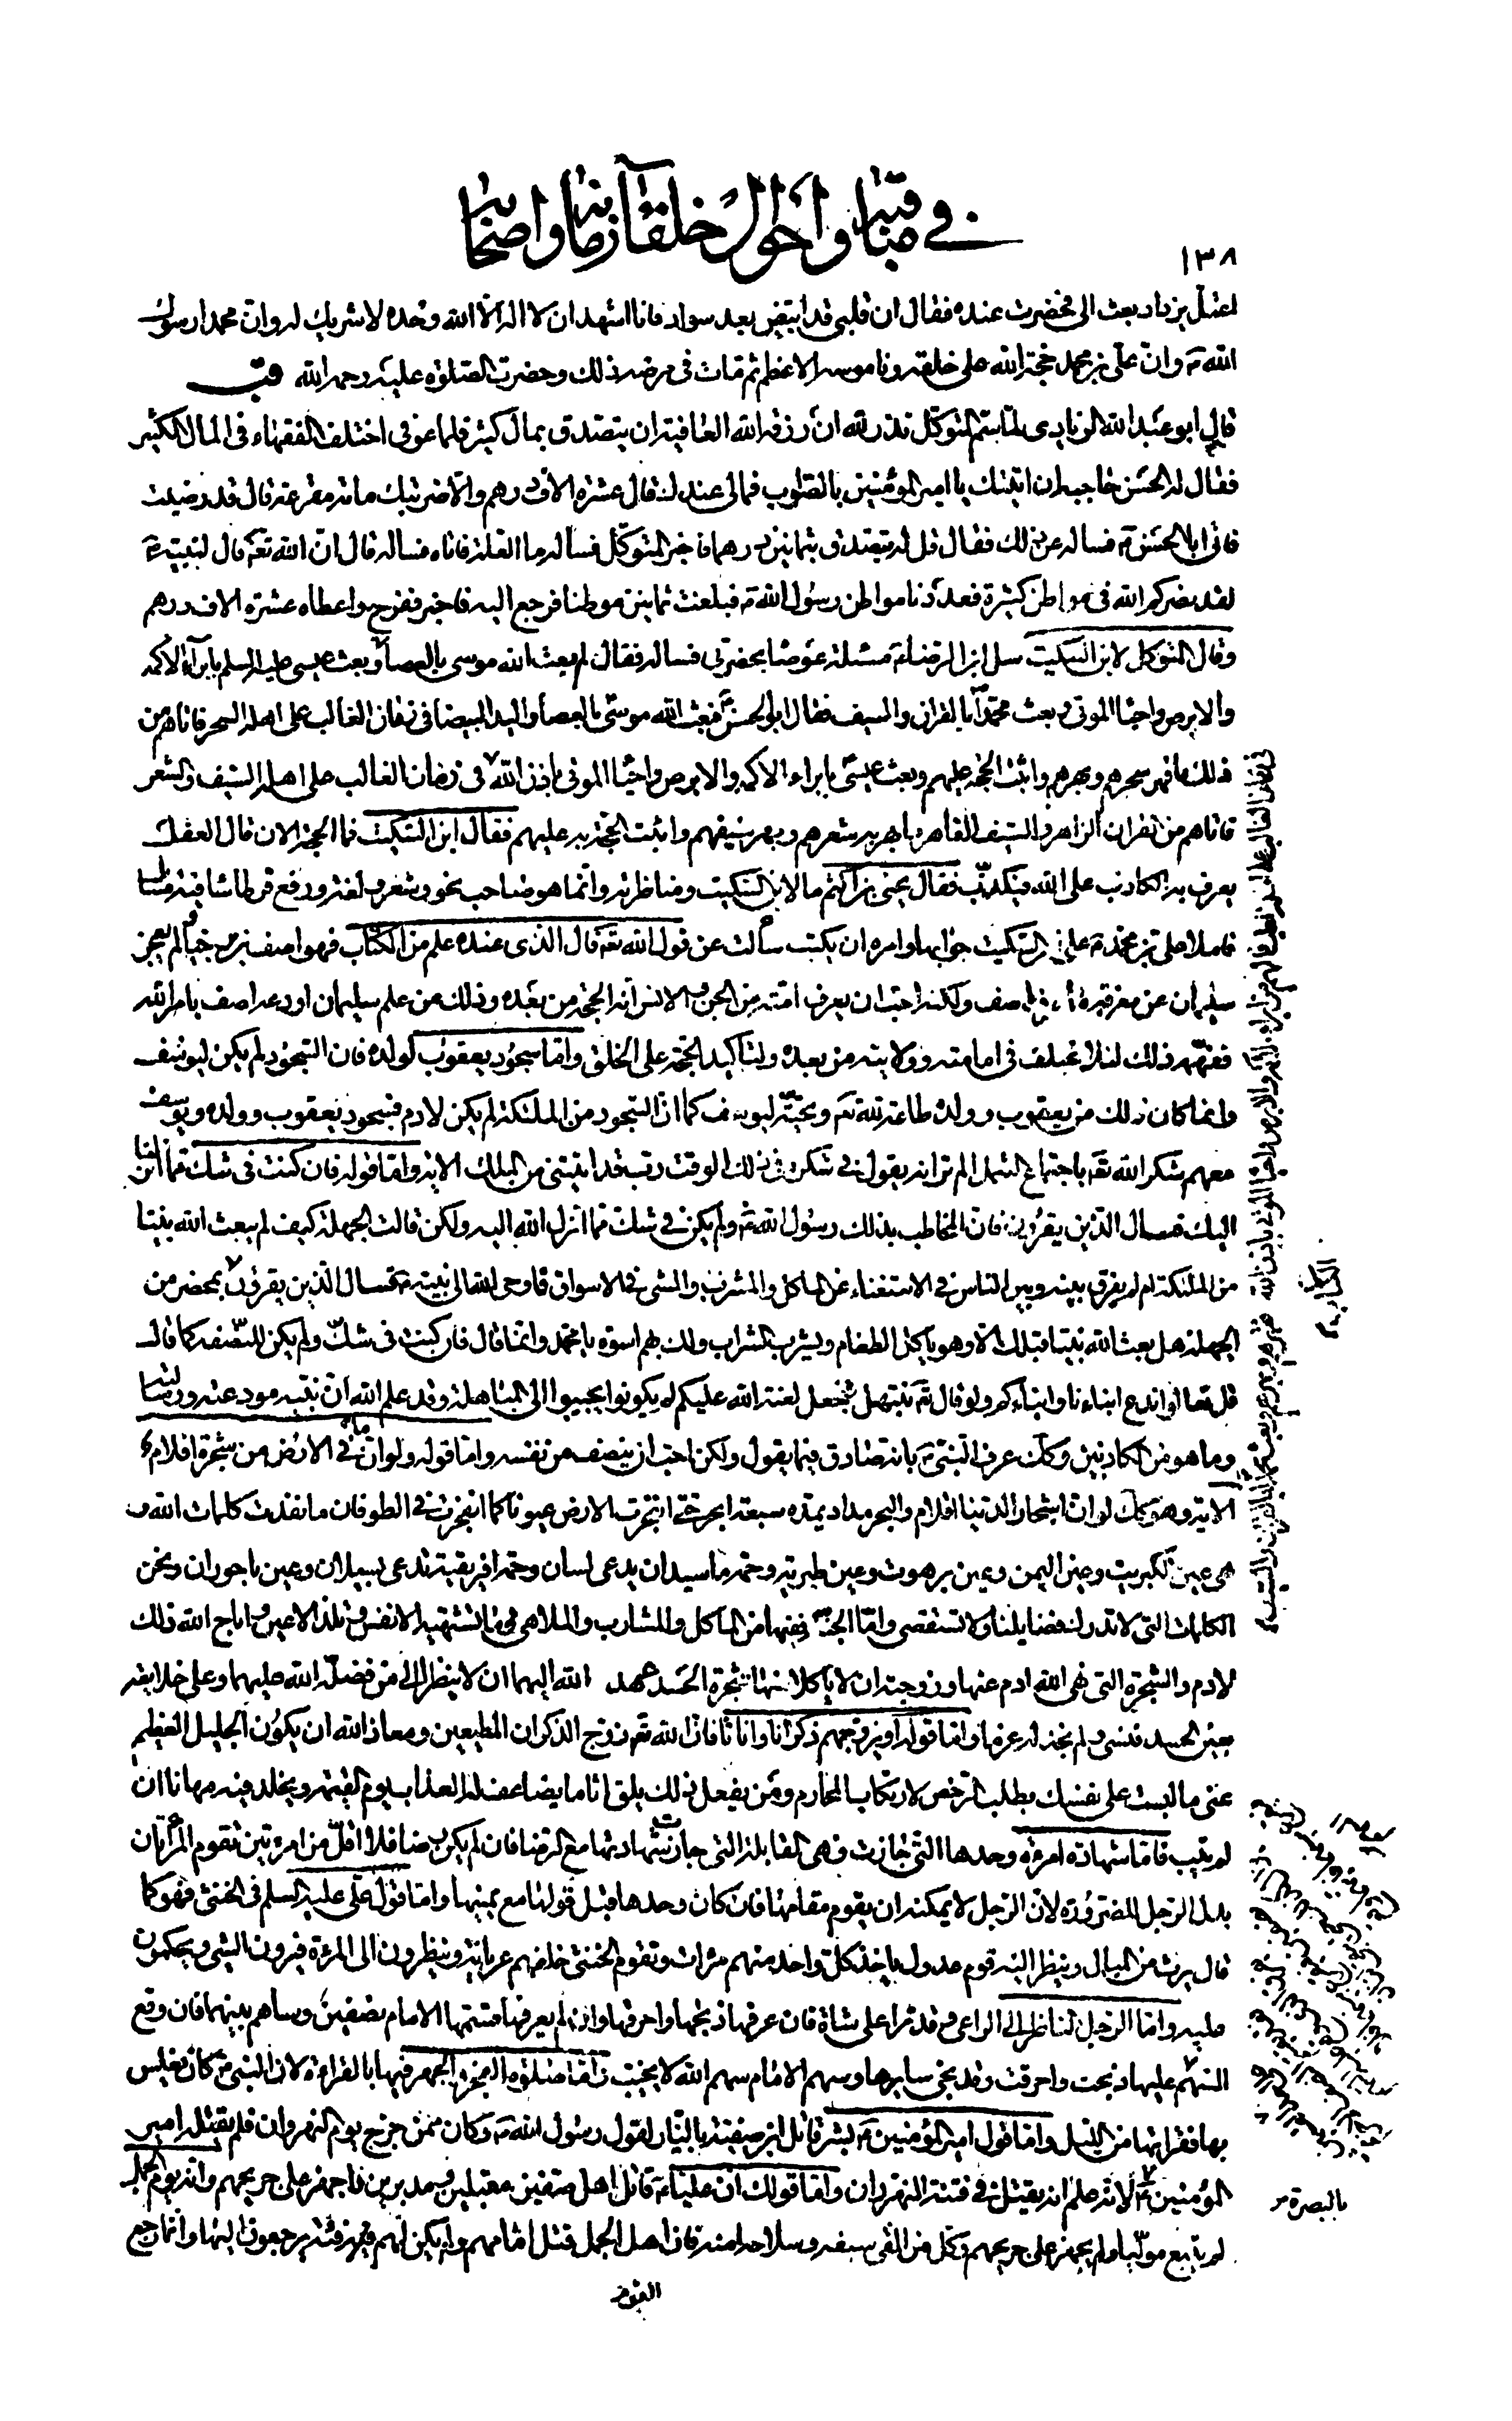 في مناقبه واحوال خلفآء زمانه واصحابه
١٣٨
اعتل يزداد بعث الى فحضرت عنده فقال ان قلبى قد ابيض بعد سواد فانا اشهد ان لا اله الا الله وحده لا شريك له وان محمدا رسول
الله ص وان على بن محمد حجة الله على خلقه وناموسه الاعظم ثم مات فى مرضه ذلك وحضرت الصلوة عليه رحمه الله قب
قال ابو عبد الله الزيادى لما سم المتوكل نذر لله ان رزقه الله العافية ان يتصدق بمال كثير فلما عوفى اختلف الفقهاء فى المال الكثير
فقال له الحسن حاجبه ان اتيتك يا امير المؤمنين بالصواب فمالى عندك قال عشرة الاف درهم والا ضربتك مائة مقرعة قال قد رضيت
فاتى ابا الحسن ع فساله عن ذلك فقال قل له يتصدق بثمانين درهما فاخبر المتوكل فساله ما العلة فاتاه فساله قال ان الله تعه قال لنبيه ص
لقد نصركم الله فى مواطن كثيرة فعددنا مواطن رسول الله ص فبلغت ثمانين موطنا فرجع اليه فاخبره ففرح واعطاه عشرة الاف درهم
وقال المتوكل لابن السكيت سل ابن الرضا مسئلة عوصا بحضرتى فساله فقال لم بعث الله موسى بالعصا وبعث عيسى عليه السلم بابرآء الاكمه
والابرص واحيا الموتى وبعث محمدا بالقران والسيف فقال ابو الحسن ع بعث الله موسى بالعصا واليد البيضا فى زمان الغالب على اهله السحر فاتاهم من
ذلك ما قهر سحرهم وبهرهم واثبت الحجة عليهم وبعث عيسى بابراء الاكمه والابرص واحيا الموتى باذن الله فى زمان الغالب على اهله السيف والشعر
فاتاهم من القران الزاهر والسيف القاهر ما بهر به شعرهم وبهر سيفهم واثبت الحجة به عليهم فقال ابن السكيت فما الحجة الان قال العقل
يعرف به الكاذب على الله فيكذب فقال يحيى بن اكثم ما لابن السكيت ومناظرته وانما هو صاحب نحو وشعر ولغة ورفع قرطاسا فيه مسايل
فاملا على بن محمد ع على ابن السكيت جوابها وامره ان يكتب سألت عن قول الله تعه قال الذى عنده علم من الكتاب فهو اصف بن برخيا ولم يعجز
سليمان عن معرفة ما عرف اصف ولكنه احب ان يعرف امته من الجن والانس انه الحجة من بعده وذلك من علم سليمان اودعه اصف بامر الله
ففهمه ذلك لئلا يختلف فى امامته وولايته من بعده ولتاكيد الحجة على الخلق واما سجود يعقوب لولده فان السجود لم يكن ليوسف
وانما كان ذلك من يعقوب وولده طاعة لله تعه وتحية ليوسف كما ان السجود من الملئكة لم يكن لادم فسجود يعقوب وولده ويوسف
معهم شكر الله تعه باجتماع الشمل الم تر انه يقول فى شكره فى ذلك الوقت رب قد اتيتنى من الملك الاية واما قوله فان كنت فى شك مما انزلنا
اليك فسال الذين يقرؤن فان المخاطب بذلك رسول الله ص ولم يكن فى شك مما انزل الله اليه ولكن قالت الجهلة كيف لم يبعث الله نبيا
من الملئكة ام لم يفرق بينه وبين الناس فى الاستغناء عن الماكل والمشرب والمشى فى الاسواق فاوحى الله الى نبيه ص فسال الذين يقرؤن بمحضر من
الجهلة هل بعث الله نبيا قبلك الا وهو ياكل الطعام ويشرب الشراب ولك بهم اسوة يا محمد وانما قال فان كنت فى شك ولم يكن للنصفه كما قال
قل تعالوا ندع ابناءنا وابناءكم ولو قال ثم نبتهل فنجعل لعنة الله عليكم لم يكونوا يجيبوا الى المباهلة وقد علم الله ان نبيه مود عنه رسالته
وما هو من الكاذبين وكك عرف النبى ص بانه صادق فيما يقول ولكن احب ان ينصف من نفسه واما قوله ولو ان ما فى الارض من شجرة اقلام
الاية وهو كك لو ان اشجار الدنيا اقلام والبحر مداد يمده سبعة ابحر حتى انفجرت الارض عيونا كما انفجرت فى الطوفان ما نفذت كلمات الله و
هى عين الكبريت وعين اليمن وعين برهوت وعين طبرية وحمه ماسيدان يدعى لسان وحمه افريقية تدعى بسيلان وعين باجوران ونحن
الكلمات التى لا تدرك فضايلنا ولا تستقصى واما الجنة ففيها من الماكل والمشارب والملاهى ما تشتهيه الانفس وتلذ الاعين واباح الله ذلك
لادم والشجرة التى نهى الله ادم عنها وزوجته ان لا ياكلا منها شجرة الحسد عهد الله اليهما ان لا ينظرا الى من فضل الله عليهما وعلى خلايقه
بعين الحسد فنسى ولم نجد له عزما واما قوله او يزوجهم ذكرانا واناثا فان الله تعه زوج الذكران المطيعين ومعاذ الله ان يكون الجليل العظيم
عنى ما لبست على نفسك بطلب الرخص لارتكاب المحارم ومن يفعل ذلك يلق اثاما يضاعف له العذاب يوم القيمة ويخلد فيه مهانا ان
لم يتب فاما شهادة امرءة وحدها التى جازت فهى القابلة التى جازت شهادتها مع الرضا فان لم يكن رضا فلا اقل من امرءتين تقوم المرءتان
بدل الرجل للضرورة لان الرجل لا يمكنه ان يقوم مقامها فان كان وحدها قبل قولها مع يمينها واما قول على عليه السلم فى الخنثى فهو كما
قال يرث من المبال وينظر اليه قوم عدول ياخذ كل واحد منهم مرات وتقوم الخنثى خلفهم عريانة وينظرون الى المرءة فيرون الشى ويحكمون
عليه واما الرجل الناظر الى الراعى وقد نزا على شاة فان عرفها ذبحها واحرقها وان لم يعرفها قسمها الامام نصفين وساهم بينهما فان وقع
السهم عليها ذبحت واحرقت وقد نجى سايرها وسهم الامام سهم الله لا يخيب واما صلوة الفجر والجهر فيها بالقراءة لان النبى ص كان يغلس
بها فقرائتها من الليل واما قول امير المؤمنين ع بشر قاتل ابن صفية بالنار لقول رسول الله ص وكان ممن خرج يوم النهروان فلم يقتله امير
المؤمنين ع لانه علم انه يقتل فى فتنة النهروان واما قولك ان عليا ع قاتل اهل صفين مقبلين ومدبرين فاجهز على جريحهم وانه يوم الجمل
بالبصرة
لم يتبع موليا ولم يجهز على جريحهم وكل من القى سيفه وسلاحه امنه فان اهل الجمل قتل امامهم ولم يكن لهم فئة يرجعون اليها وانما رجع
القوم